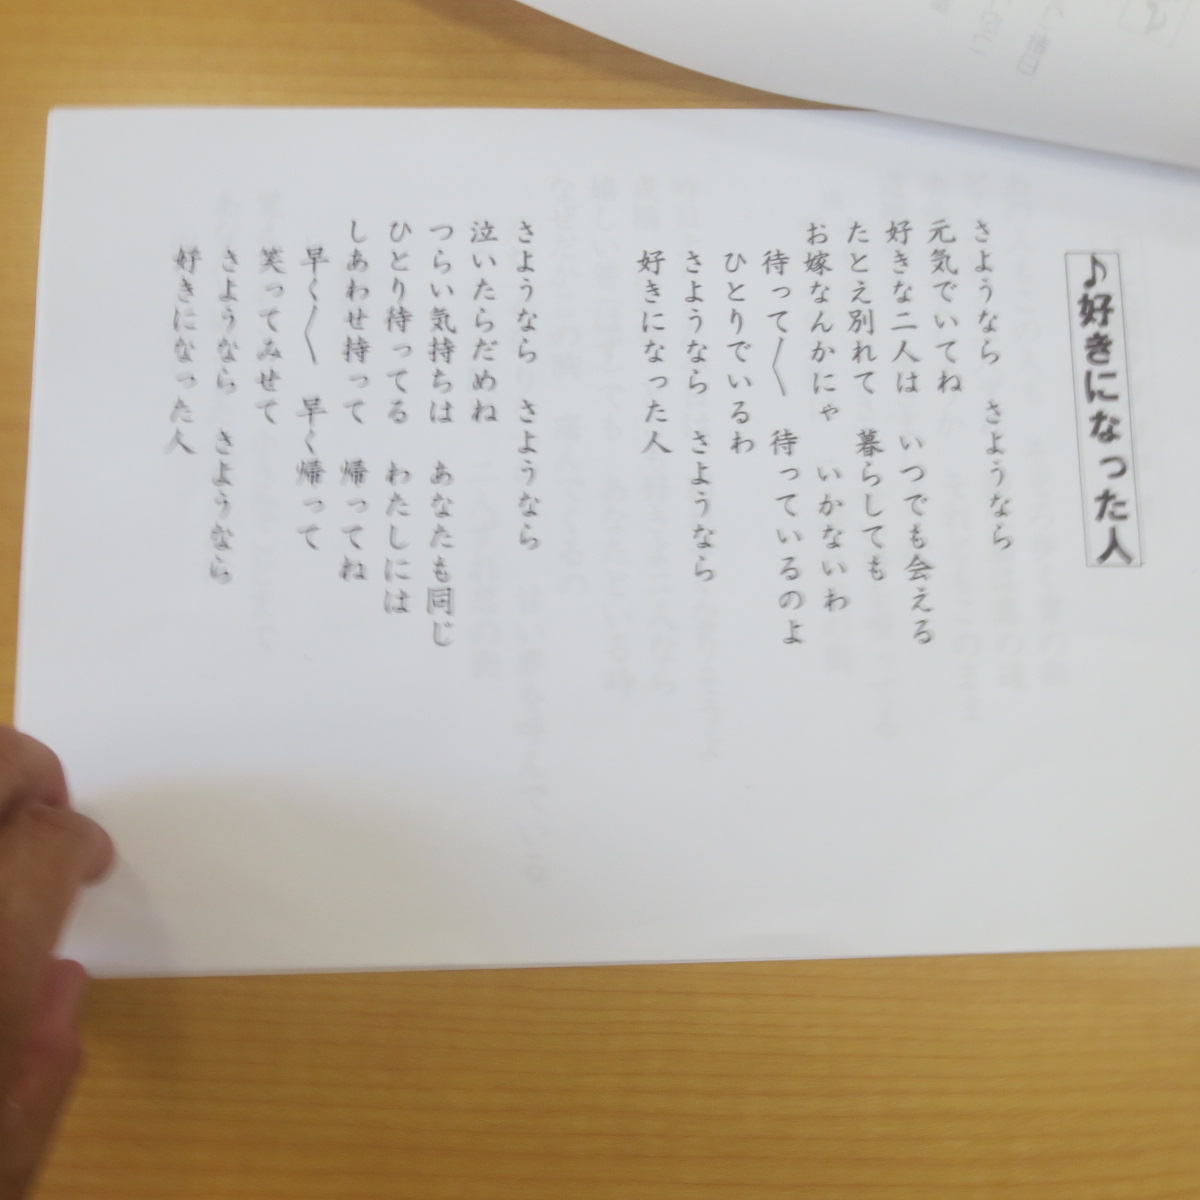 ♪好きになった人
さようなら さようなら
元気でいてね
好きな二人は いつでも会える
たとえ別れて 暮らしても
お嫁なんかにゃ いかないわ
待って〳〵 待っているのよ
ひとりでいるわ
さようなら さようなら
好きになった人
さようなら さようなら
泣いたらだめね
つらい気持ちは あなたも同じ
ひとり待ってる わたしには
しあわせ持って 帰ってね
早く〳〵 早く帰って
笑ってみせて
さようなら さようなら
好きになった人